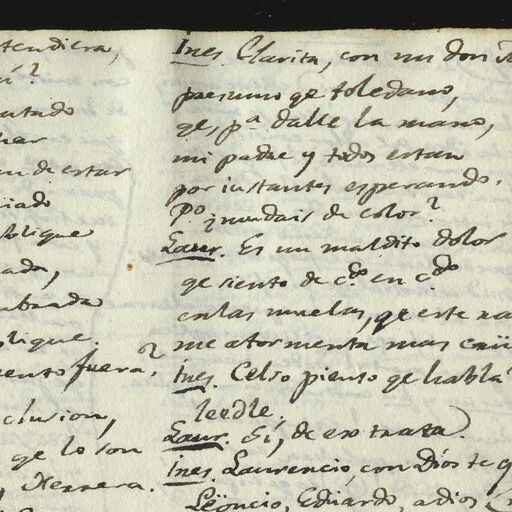 tendiera,
ú?
utado
har
n de estar
ciado
plique
ada,
olique.
iento fuera?
clusion,
ge lo son
Herrera.
Ines Clarita, con un don
presumo qe toledano,
qe, pa dalle la mano,
mi padre y todos estan
por instantes esperando.
Po ¿mudais de color?
Laur. Es un maldito dolor
qe siento de cdo en cdo
en las muelas, qe este
me atormenta mas
Ines. Celio pienso qe habla
leedle.
Laur. Sí, de eso trata.
Ines. Laurencio, con Dios te
Leoncio, Eduardo, adios